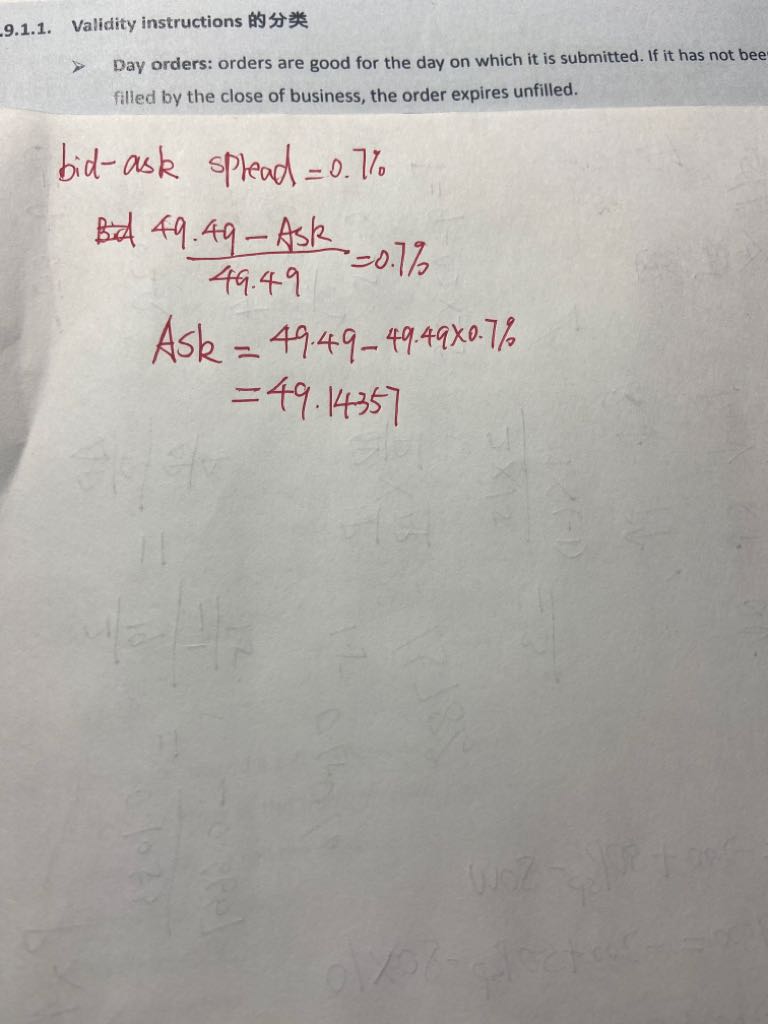 .9.1.1. Validity instructions 的分类
➢ Day orders: orders are good for the day on which it is submitted. If it has not bee
filled by the close of business, the order expires unfilled.
bid-ask spread = 0.7%
49.49 - Ask
49.49
= 0.7%
Ask = 49.49 - 49.49 × 0.7%
= 49.14357